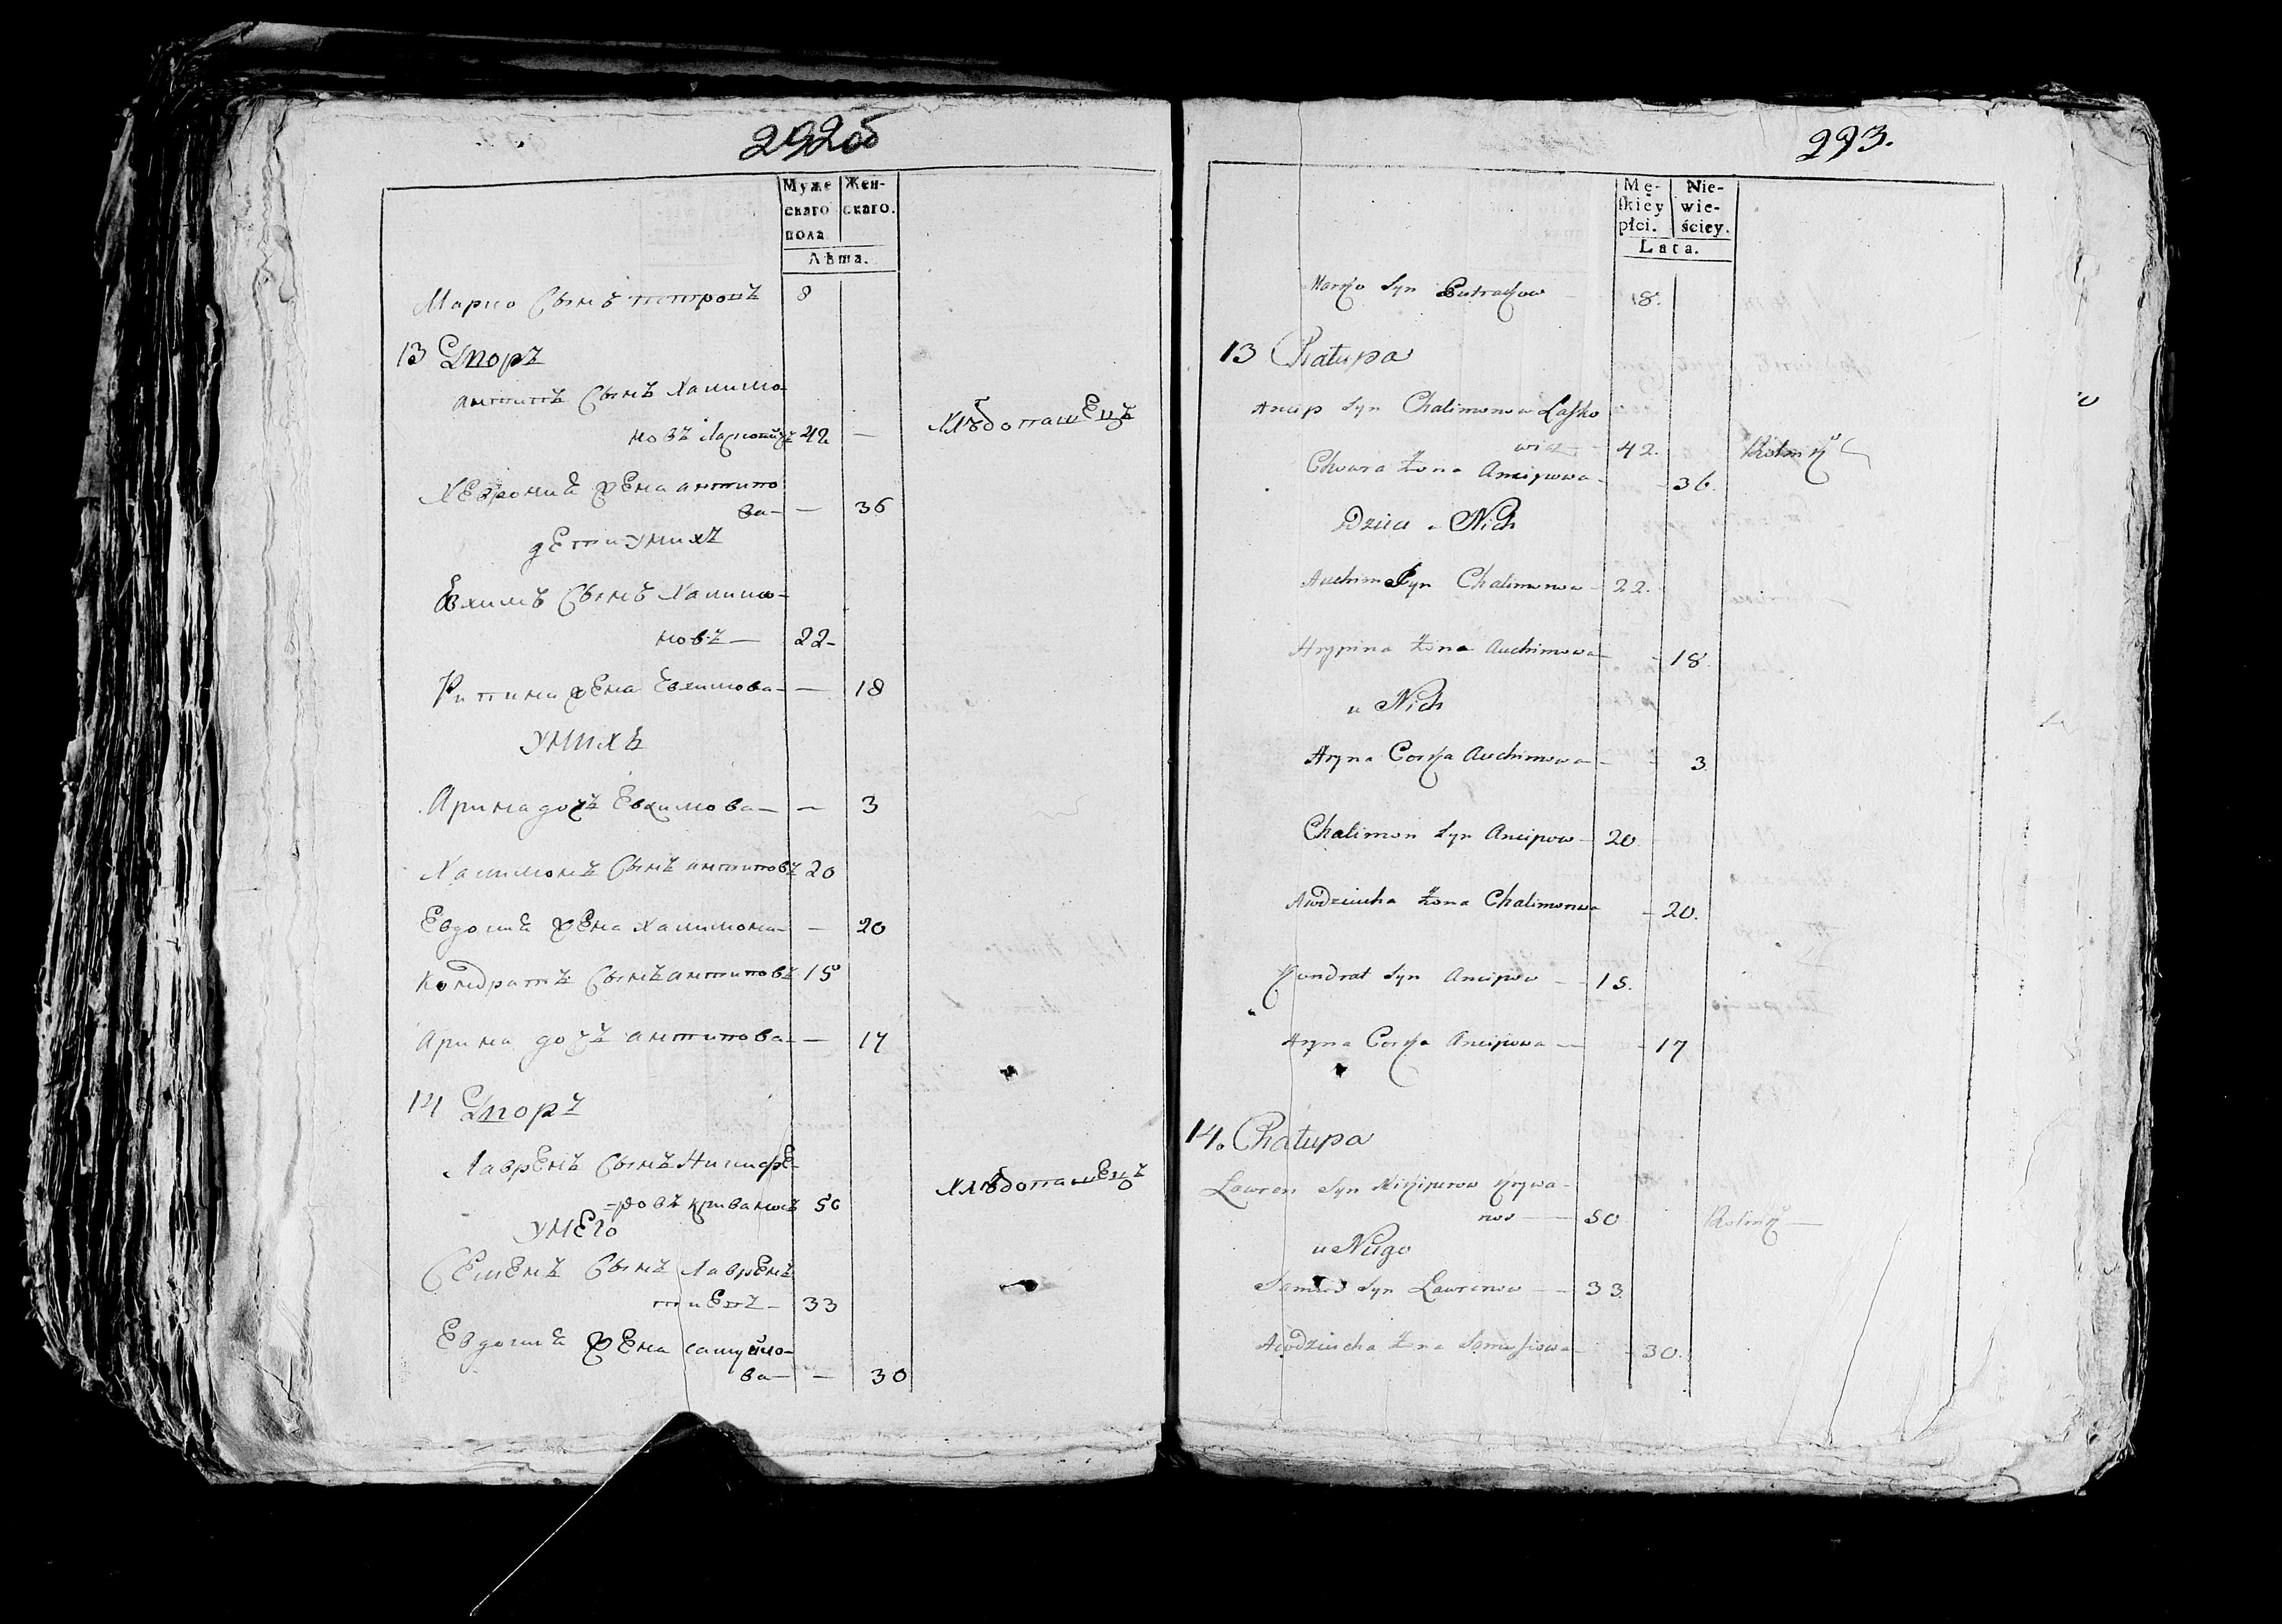 292об
Муже
скаго
пола
Жен-
скаго.
Лѣта.
Марко Сынъ петровъ 8
13 Дворъ
антипъ Сынъ Халимо
новъ 42 — Хлѣбопашецъ
Хеврония жена антипо
ва — — 36
дети у них
Евхимъ Сынъ Халимо-
новъ — 22-
жена Евхимова — — 18
у них
Арина дочь Евхимова — — 3
Халимонъ Сынъ антиповъ 20
Евдокия жена Халимона — — 20
Кондратъ Сынъ антиповъ 15
Арина дочь антипова — — 17
14 Дворъ
Лавренъ Сынъ Никифе-
ровъ 50 Хлѣбопашецъ
у него
Семенъ Сынъ Лаврен
тиевъ — 33
Евдокия жена самуйло-
ва — — 30
293.
Mę-
skiey
płci.
Nie-
wie-
ściey.
Lata.
Marko Syn 18.
13 Chałupa
Ancip Syn Chalimonow Lasko
wicz — 42. Rolnik
Chwora Żona Ancipowa — 36.
Dzieci u Nich
Auchim Syn Chalimonow — 22.
Hrypina Żona Auchimowa — 18.
u Nich
Aryna Corka Auchimowa — 3.
Chalimon Syn Ancipow — 20.
Awdziucha Żona Chalimonowa — 20.
Kondrat Syn Ancipow — 15.
Aryna Corka Ancipowa — 17
14. Chałupa
Lawren Syn Nikiperow Krywa-
nos — 50 Rolnik —
u Niego
Syn Lawrenow — 33.
Awdziucha Żona — 30.